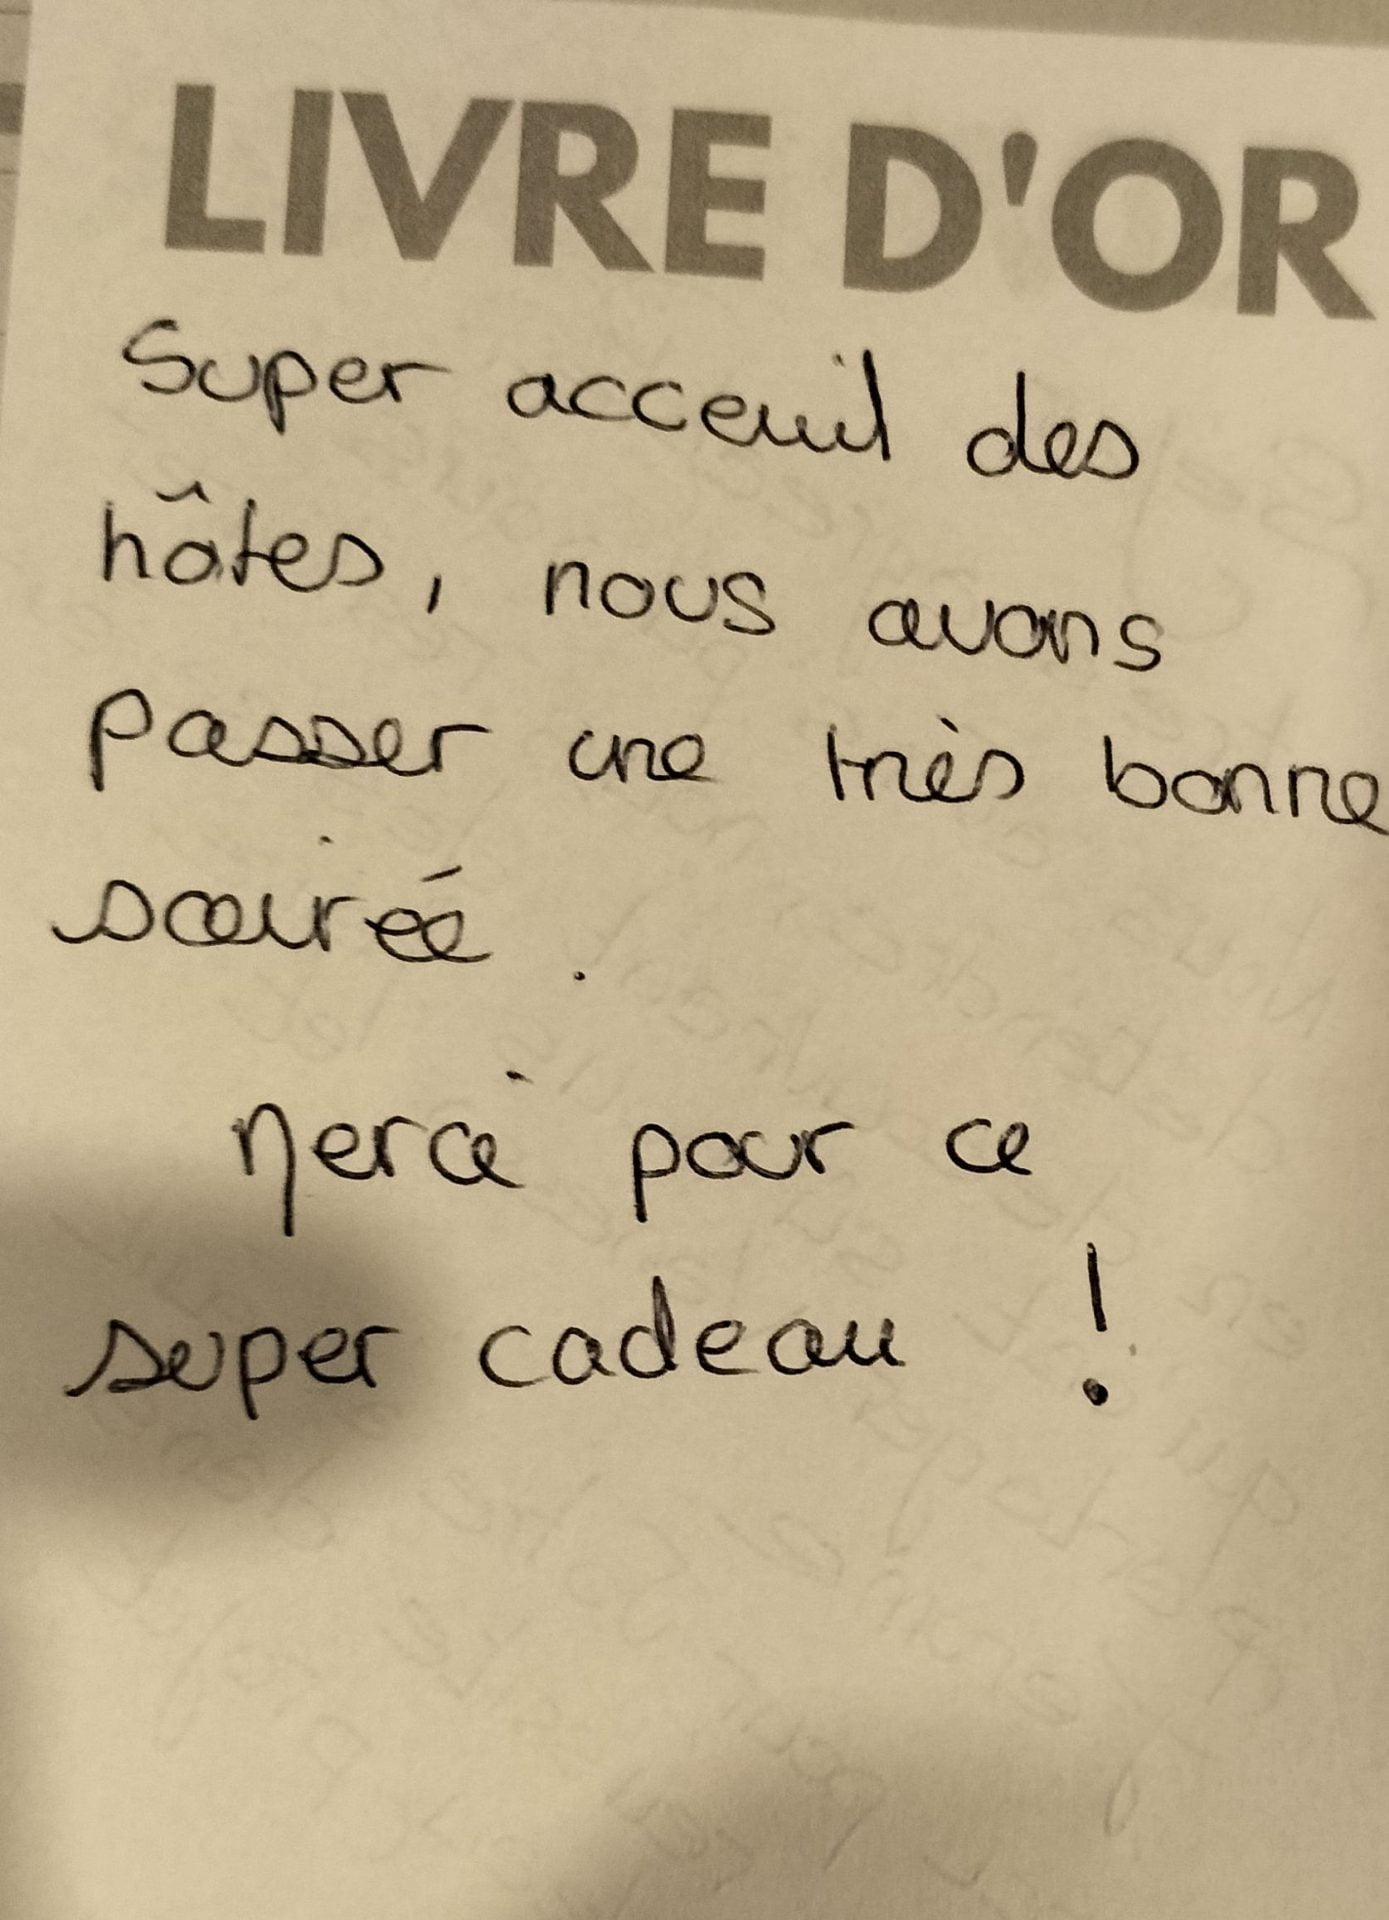 LIVRE D'OR
Super acceuil des
hôtes, nous avons
passer une très bonne
soirée.
Merci pour ce
super cadeau !